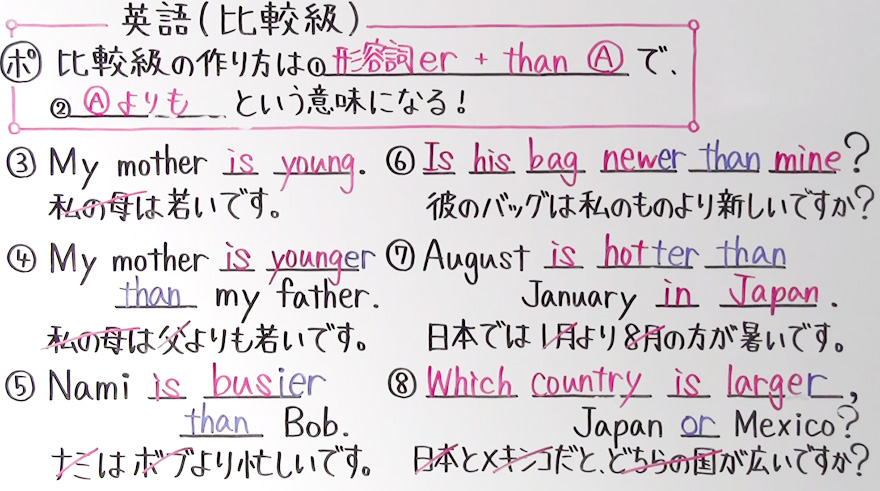 英語(比較級)
ポ 比較級の作り方は①形容詞er + than Ⓐ で、
② Ⓐよりも という意味になる!
③ My mother is young.
私の母は若いです。
④ My mother is younger
than my father.
私の母は父よりも若いです。
⑤ Nami is busier
than Bob.
ナミはボブより忙しいです。
⑥ Is his bag newer than mine?
彼のバッグは私のものより新しいですか?
⑦ August is hotter than
January in Japan.
日本では1月より8月の方が暑いです。
⑧ Which country is larger,
Japan or Mexico?
日本とメキシコだと、どちらの国が広いですか?